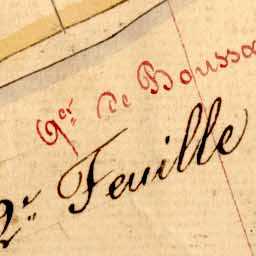 9.er de Boussa
2.e Feuille